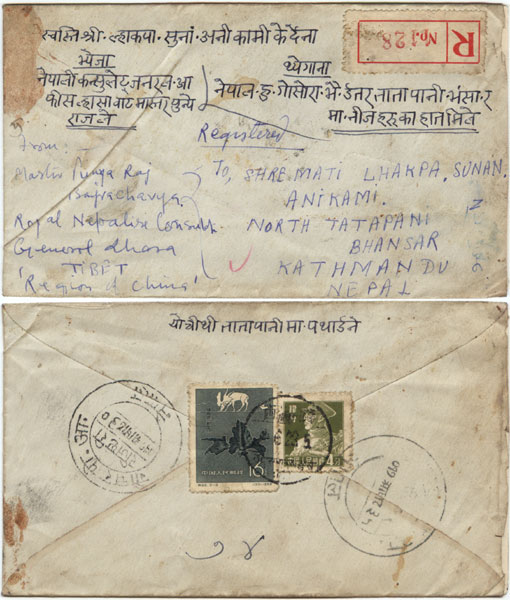 स्वस्ति श्री ल्हाकपा सुनां अनी कामी के देना
R
No. 128
भेजा
नेपाली कन्सुलेट् जनरल आ
फीस हासा बाट मास्तर पुन्य
राजले
ठेगाना
नेपाल हु गोसोरा भै उतर तातापानी भंसार
मा नीज हरुका हात मिले
Registered
From:-
Master Punya Raj
Bajracharya
Royal Nepalese Consulate
General Lhasa
TIBET
'Region of China'
To, SHREEMATI LHAKPA, SUNAN.
ANIKAMI.
NORTH TATAPANI
BHANSAR
KATHMANDU
NEPAL
यो चीठी तातापानी मा पथाई ने
16
७४